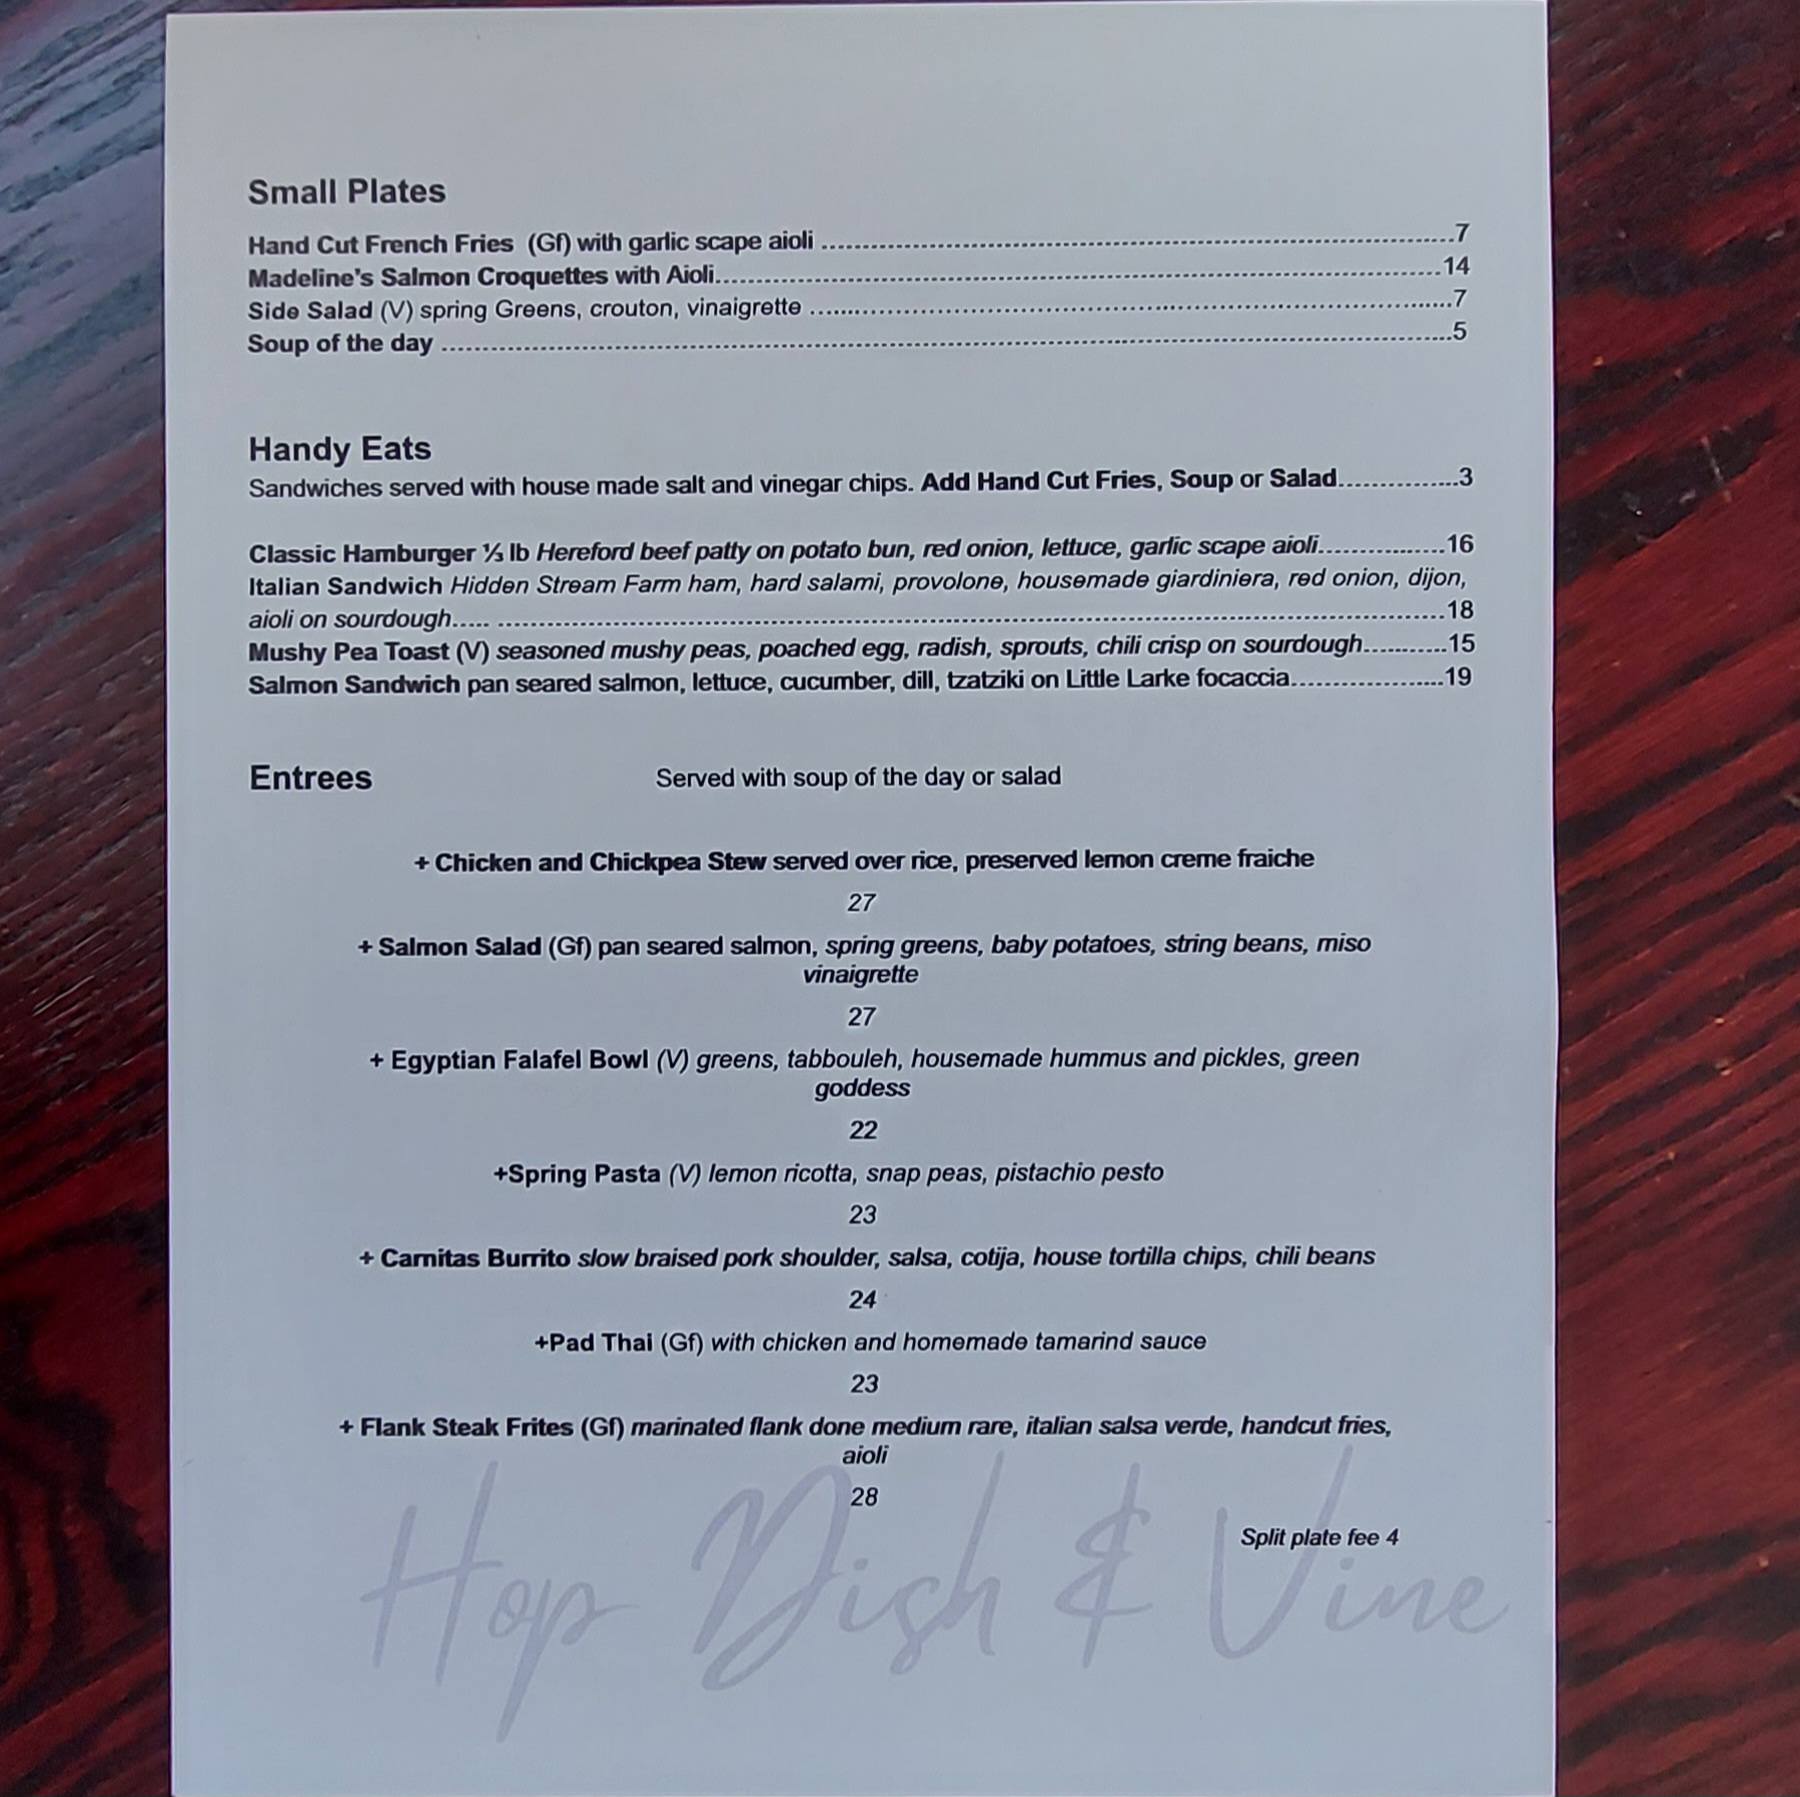 Small Plates
Hand Cut French Fries (Gf) with garlic scape aioli ........................................................................7
Madeline's Salmon Croquettes with Aioli........................................................................14
Side Salad (V) spring Greens, crouton, vinaigrette ........................................................................7
Soup of the day ........................................................................5
Handy Eats
Sandwiches served with house made salt and vinegar chips. Add Hand Cut Fries, Soup or Salad...............3
Classic Hamburger ⅓ lb Hereford beef patty on potato bun, red onion, lettuce, garlic scape aioli................16
Italian Sandwich Hidden Stream Farm ham, hard salami, provolone, housemade giardiniera, red onion, dijon,
aioli on sourdough..... ........................................................................18
Mushy Pea Toast (V) seasoned mushy peas, poached egg, radish, sprouts, chili crisp on sourdough............15
Salmon Sandwich pan seared salmon, lettuce, cucumber, dill, tzatziki on Little Larke focaccia...................19
Entrees Served with soup of the day or salad
+ Chicken and Chickpea Stew served over rice, preserved lemon creme fraiche
27
+ Salmon Salad (Gf) pan seared salmon, spring greens, baby potatoes, string beans, miso
vinaigrette
27
+ Egyptian Falafel Bowl (V) greens, tabbouleh, housemade hummus and pickles, green
goddess
22
+Spring Pasta (V) lemon ricotta, snap peas, pistachio pesto
23
+ Carnitas Burrito slow braised pork shoulder, salsa, cotija, house tortilla chips, chili beans
24
+Pad Thai (Gf) with chicken and homemade tamarind sauce
23
+ Flank Steak Frites (Gf) marinated flank done medium rare, italian salsa verde, handcut fries,
aioli
28
Split plate fee 4
Hop Dish & Vine